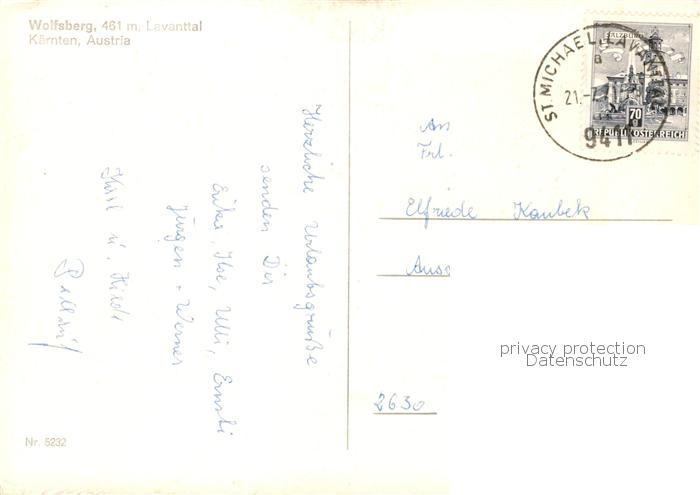 Wolfsberg, 461 m, Lavanttal
Kärnten, Austria
Herzliche Urlaubsgrüße
senden Dir
Erika, Ilse, Ulli, Ernsti
Jürgen + Werner
u. Hilde
Nr. 5232
ST. MICHAEL, LAVANTTAL
21.-
9411
SALZBURG
70
REPUBLIK ÖSTERREICH
An
Frl.
Elfriede Kaubek
2630
privacy protection
Datenschutz